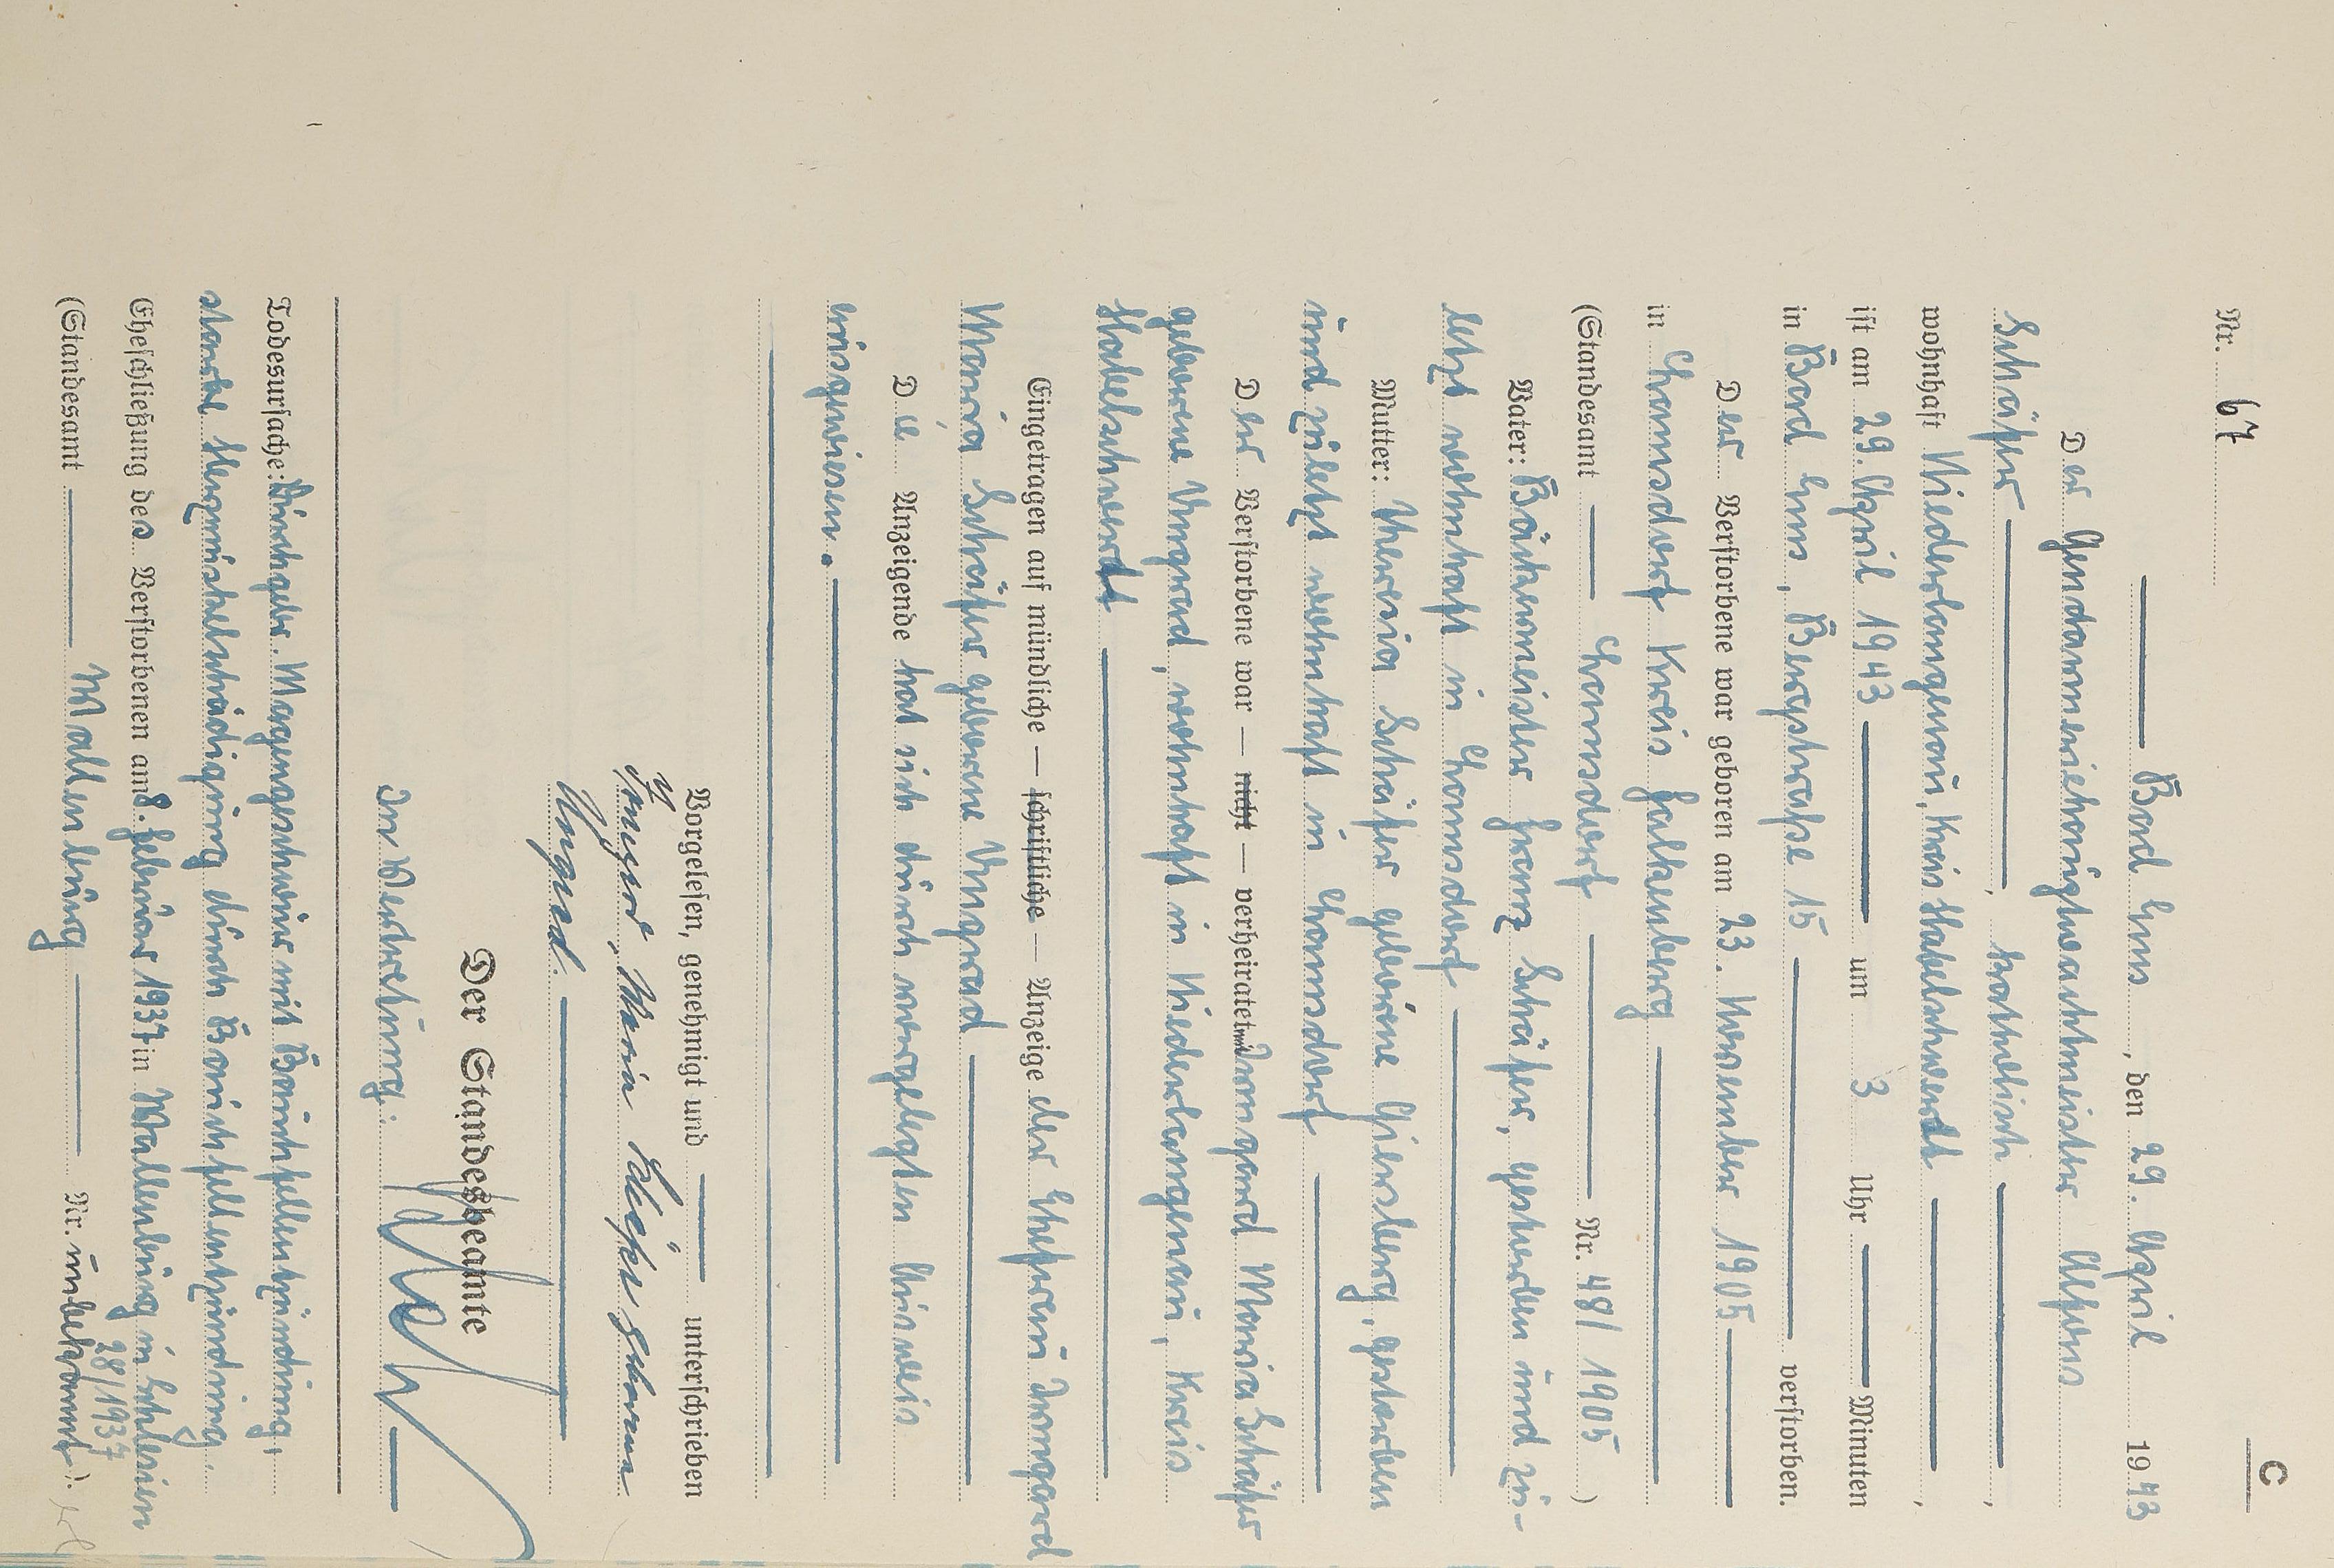 C
Nr. 67
Bad Ems, den 29. April 1943
Der Gendarmeriehauptwachtmeister Alfons
Schäfer, katholisch,
wohnhaft Niederlangenau, Kreis Habelschwerdt,
ist am 29. April 1943 um 3 Uhr Minuten
in Bad Ems, Bergstraße 15 verstorben.
Der Verstorbene war geboren am 23. November 1905
in Thomsdorf Kreis Falkenberg
(Standesamt Thomsdorf Nr. 48/1905)
Vater: Bäckermeister Franz Schäfer, gestorben und zu-
letzt wohnhaft in Thomsdorf
Mutter: Theresia Schäfer geborene Giersberg, gestorben
und zuletzt wohnhaft in Thomsdorf
Der Verstorbene war — nicht — verheiratet mit Irmgard Maria Schäfer
geborene Ungrad, wohnhaft in Niederlangenau, Kreis
Habelschwerdt
Eingetragen auf mündliche — schriftliche — Anzeige der Ehefrau Irmgard
Maria Schäfer geborene Ungrad
Die Anzeigende hat sich durch vorgelegten Ausweis
ausgewiesen.
Vorgelesen, genehmigt und unterschrieben
Irmgard, Maria Schäfer geborene
Ungrad.
Der Standesbeamte
In Vertretung:
Todesursache: Durchgebr. Magengeschwür mit Bauchfellentzündung,
starke Herzmuskelschädigung durch Bauchfellentzündung.
Eheschließung des Verstorbenen am 8. Februar 1937 in Wallenburg in Schlesien
28/1937
(Standesamt Nr. unbekannt).